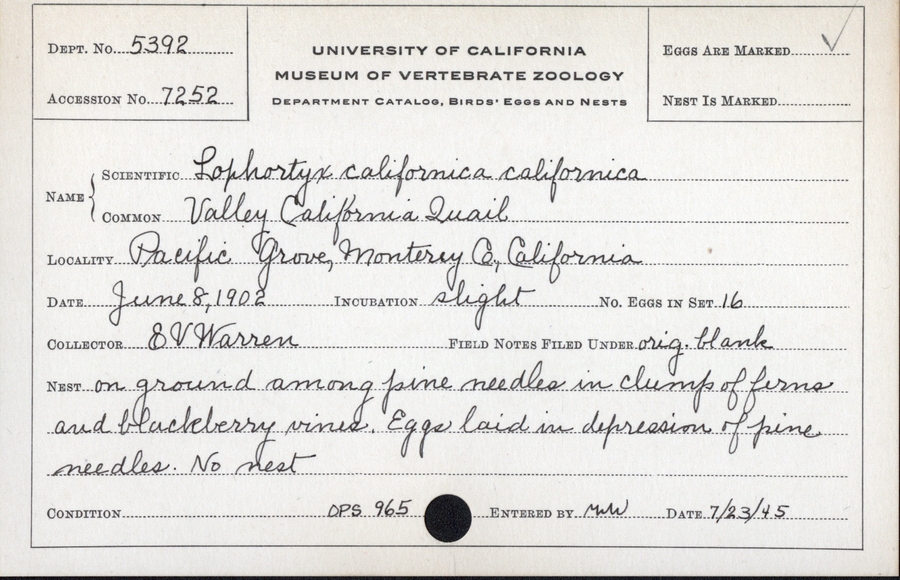 DEPT. No. 5392
ACCESSION No. 7252
UNIVERSITY OF CALIFORNIA
MUSEUM OF VERTEBRATE ZOOLOGY
DEPARTMENT CATALOG, BIRDS' EGGS AND NESTS
EGGS ARE MARKED ✓
NEST IS MARKED
NAME
SCIENTIFIC Lophortyx californica californica
COMMON Valley California Quail
LOCALITY Pacific Grove, Monterey Co, California
DATE June 8, 1902 INCUBATION slight No. EGGS IN SET 16
COLLECTOR E V Warren FIELD NOTES FILED UNDER orig. blank
NEST on ground among pine needles in clump of ferns
and blackberry vines. Eggs laid in depression of pine
needles. No nest
CONDITION OPS 965 ENTERED BY DATE 7/23/45